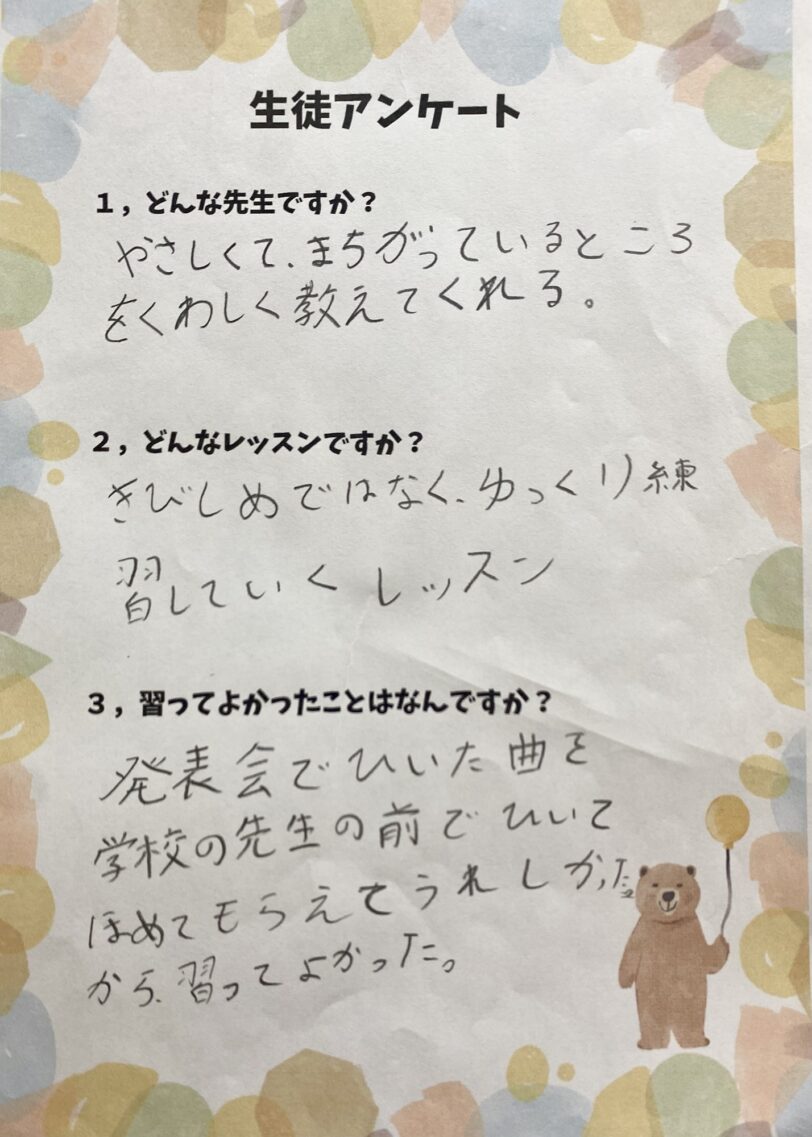 生徒アンケート
１，どんな先生ですか？
やさしくて、まちがっているところ
をくわしく教えてくれる。
２，どんなレッスンですか？
きびしめではなく、ゆっくり練
習していくレッスン
３，習ってよかったことはなんですか？
発表会でひいた曲を
学校の先生の前でひいて
ほめてもらえてうれしかった
から、習ってよかった。